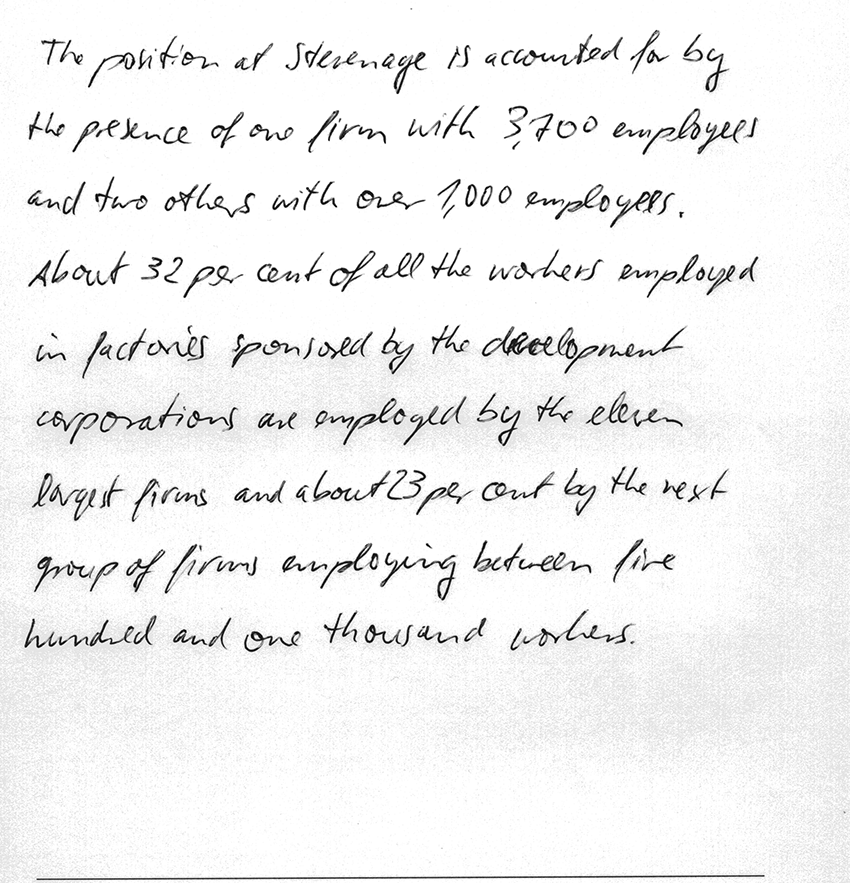 The position at Stevenage is accounted for by
the presence of one firm with 3,700 employees
and two others with over 1,000 employees.
About 32 per cent of all the workers employed
in factories sponsored by the development
corporations are employed by the eleven
largest firms and about 23 per cent by the next
group of firms employing between five
hundred and one thousand workers.